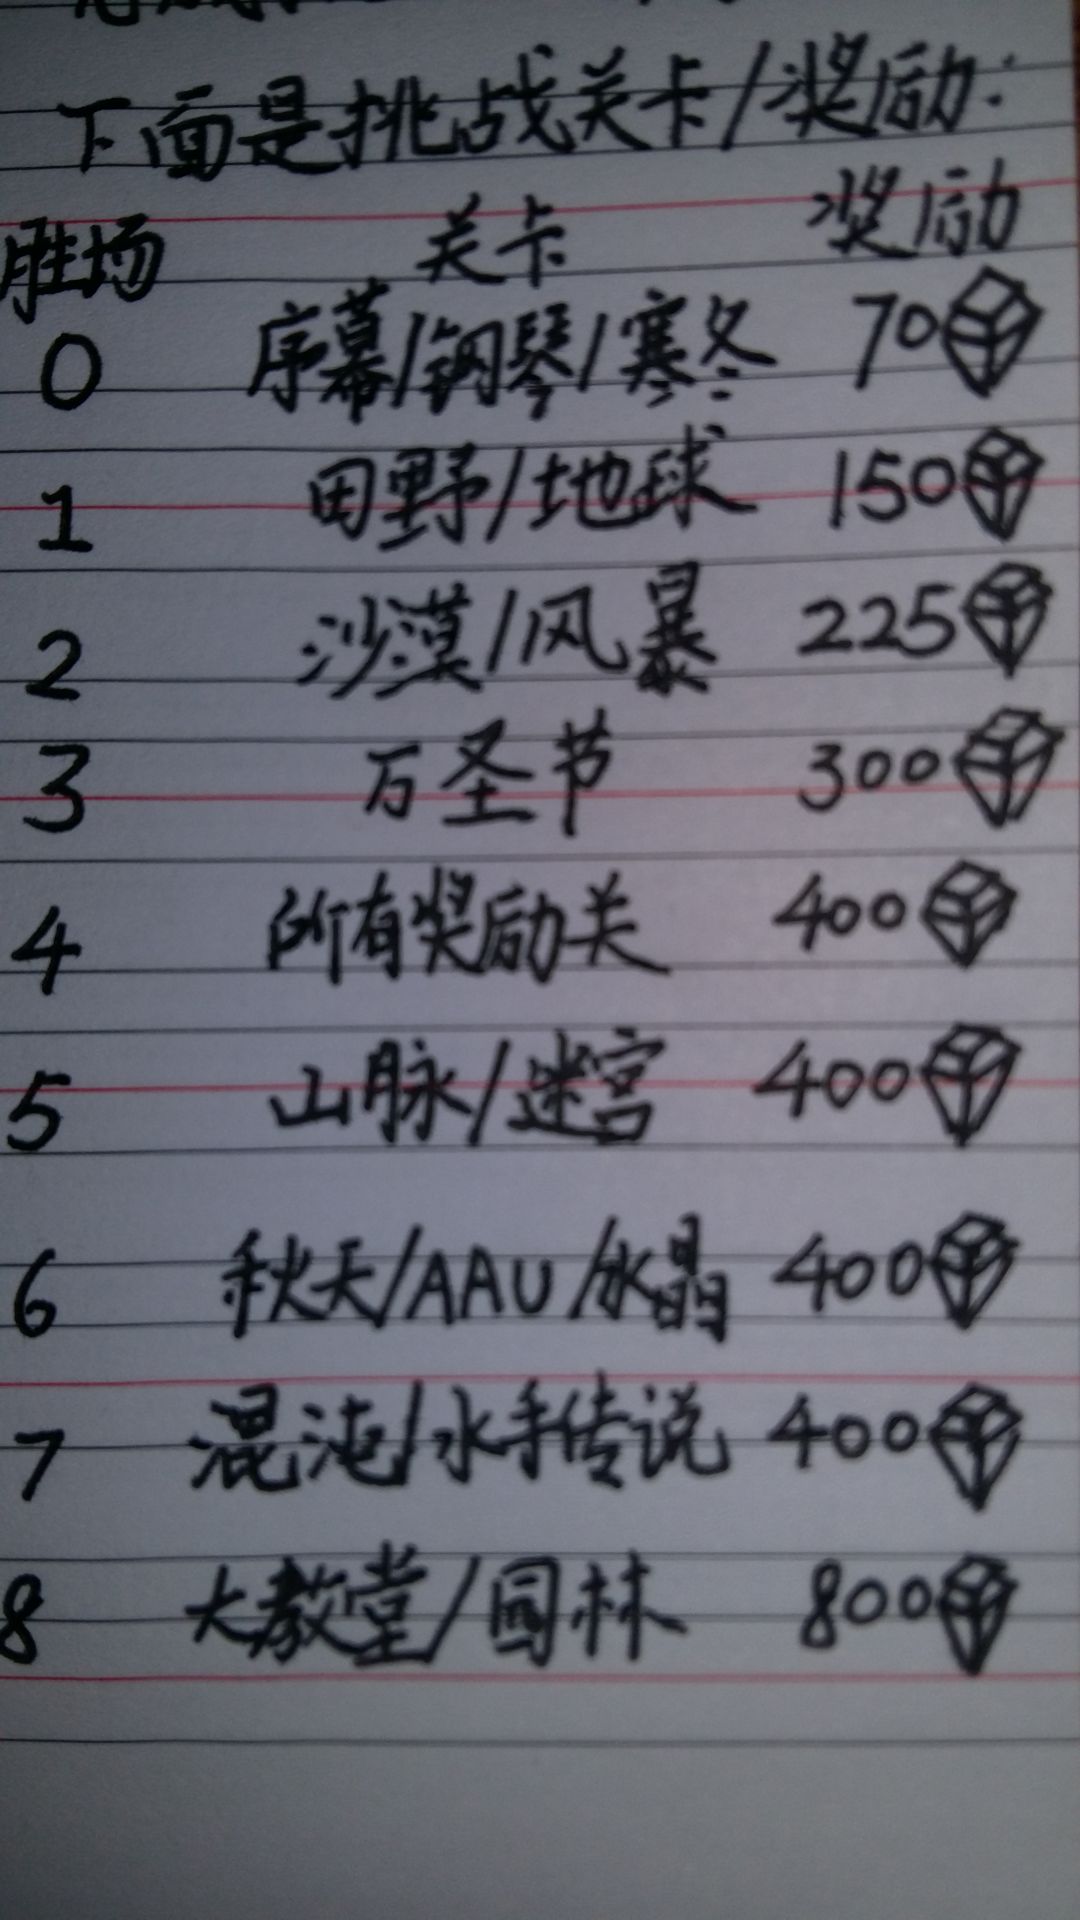 下面是挑战关卡/奖励:
胜场 关卡 奖励
0 序幕/钢琴/寒冬 70
1 田野/地球 150
2 沙漠/风暴 225
3 万圣节 300
4 所有奖励关 400
5 山脉/迷宫 400
6 秋天/AAU/水晶 400
7 混沌/水手传说 400
8 大教堂/园林 800